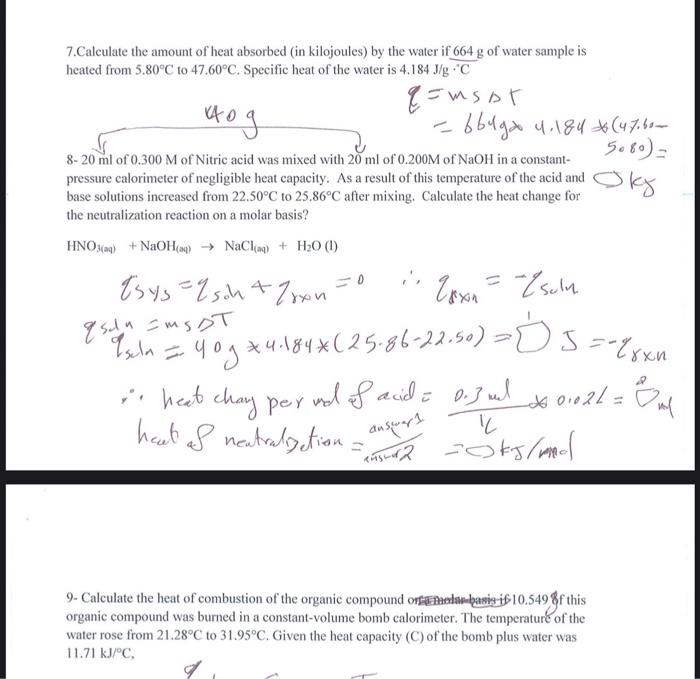 7.Calculate the amount of heat absorbed (in kilojoules) by the water if 664 g of water sample is
heated from 5.80°C to 47.60°C. Specific heat of the water is 4.184 J/g ·°C
q = msΔT
= 664g × 4.184 * (47.60 –
5.80) =
0 kJ
40g
8- 20 ml of 0.300 M of Nitric acid was mixed with 20 ml of 0.200M of NaOH in a constant-
pressure calorimeter of negligible heat capacity. As a result of this temperature of the acid and
base solutions increased from 22.50°C to 25.86°C after mixing. Calculate the heat change for
the neutralization reaction on a molar basis?
HNO3(aq) + NaOH(aq) → NaCl(aq) + H2O (l)
qsys = qsoln + qrxn = 0 ∴ qrxn = -qsoln
qsoln = msΔT
qsoln = 40g * 4.184 * (25.86-22.50) = 1 J = -qrxn
∴ heat chang per mol of acid = 0.3 mol / 1L * 0.02L = 2 mol
heat of neutralization = answer1 / answer2 = 0 kJ/mol
9- Calculate the heat of combustion of the organic compound 10.549 of this
organic compound was burned in a constant-volume bomb calorimeter. The temperature of the
water rose from 21.28°C to 31.95°C. Given the heat capacity (C) of the bomb plus water was
11.71 kJ/°C,